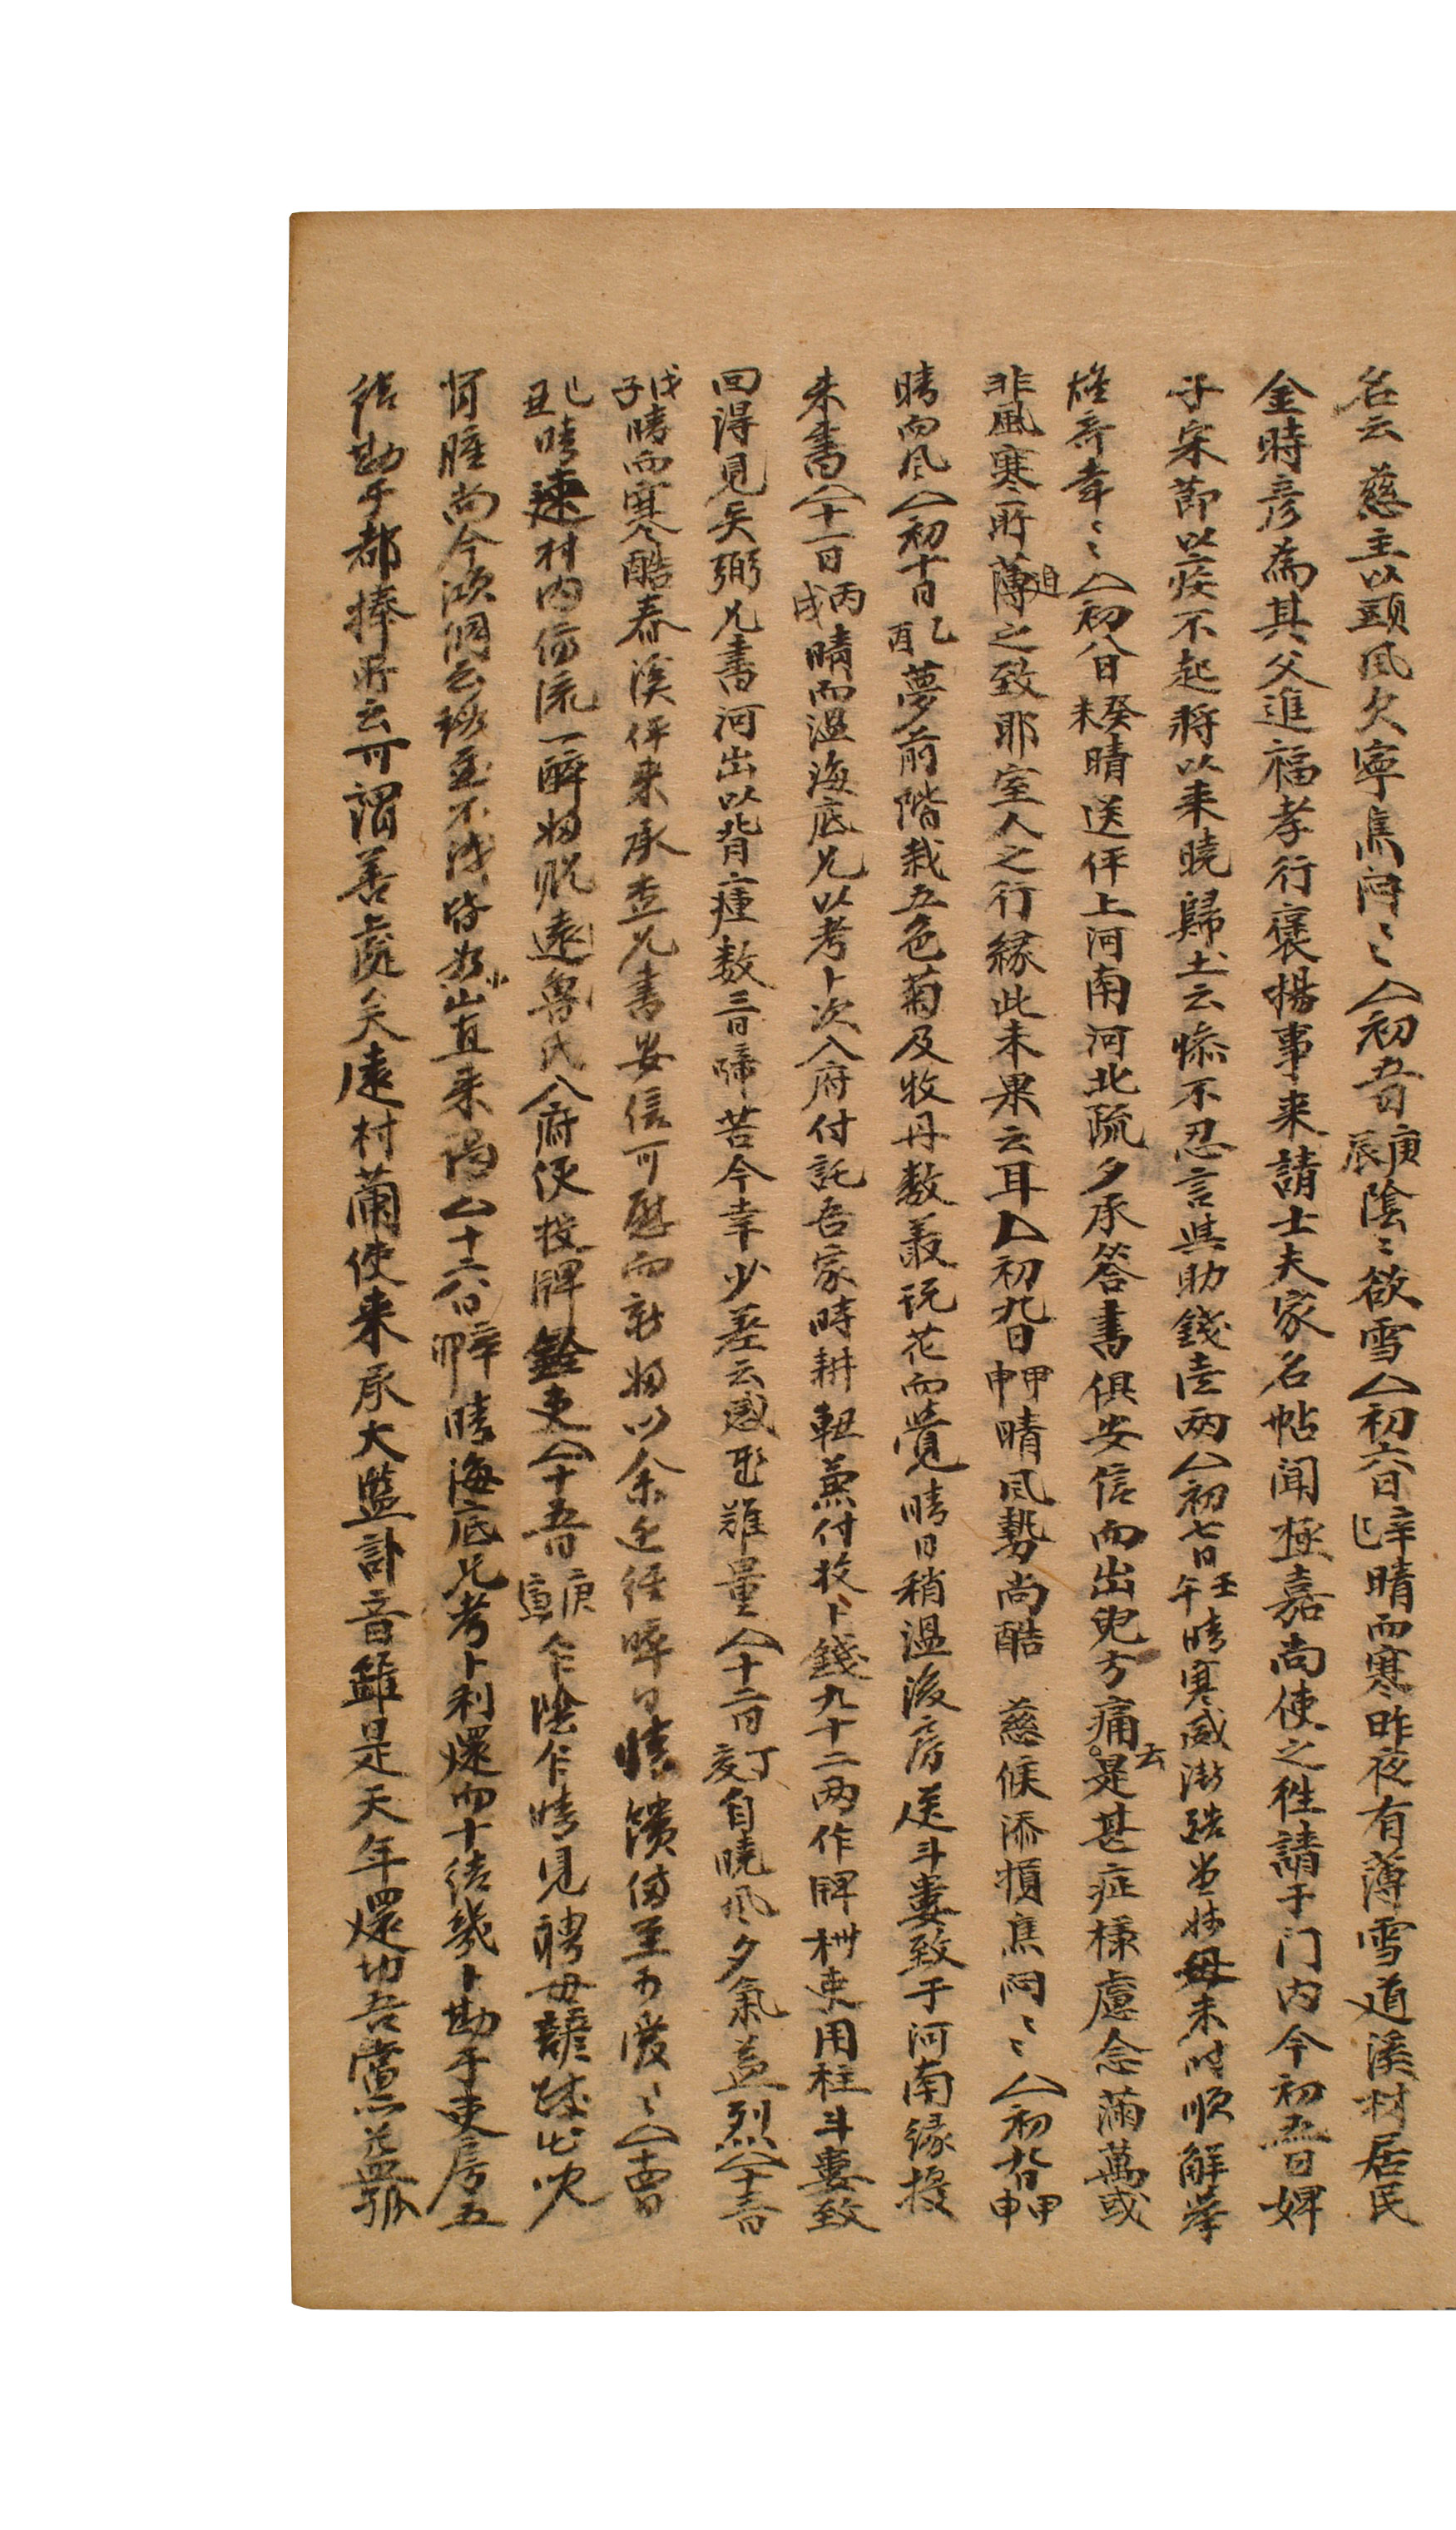 名云 慈主以頭風欠寧焦悶〻〻△初五日庚辰陰〻欲雪△初六日辛巳晴而寒昨夜有薄雪道溪村居民
金時彦為其父進福孝行褒揚事来請士夫家名帖聞極嘉尚使之往請于门内今初五日婢
子宋節以疾不起将以来曉歸土云慘不忍言其助錢壹两△初七日壬午晴寒威漸酷 母未时順解挙
雄奇幸〻〻△初八日癸未晴送伻上河南河北疏夕承答書俱安信而出兒方痛云是甚症様慮念滿萬或
非風寒所薄迫之致耶室人之行緣此未果云耳△初九日甲申晴風勢尚酷 慈候添損焦悶〻〻△初九日甲申
晴而风△初十日乙酉夢前階栽五色菊及牧丹数叢玩花而覺晴日稍温後房送斗婁致于河南緣授
来書△十一日丙戌晴而温海底兄以考卜次入府付託吾家時耕𨋀薰付投卜錢九十二两作牌 吏用柱斗婁致
回得見矣弼兄書河出以背瘇数三日啼苦今幸少差云感 難量△十二日丁亥自曉风夕氣益烈△十三日
戊子晴而寒酷春溪伻来承查兄書安信可慰而新婦以余 日 饋 至可慶〻〻△十四日
己丑晴 村内 流一醉 遠 氏入府便投牌 吏△十五日庚寅乍陰乍晴見聘母諺 此
腫尚今 云 不浅 直来 △十六日辛卯晴海底兄考卜利還四十結幾卜勘于吏房五
結勘于都捧所云可謂善處矣遠村 使来承大監訃音雖是天年還切吾黨益孤